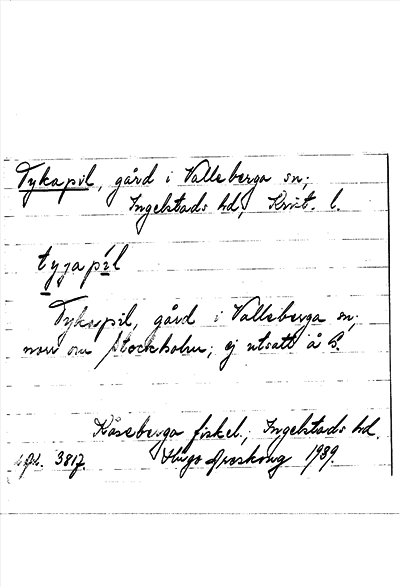 Tykapil, gård i Valleberga sn;
Ingelstads hd, Krist. l.
tygapíl
Tykapil, gård i Valleberga sn;
norr om Stockholm; ej utsatt å
Kåseberga fiskel., Ingelstads hd.
3817. Hugo Areskoug 1939.